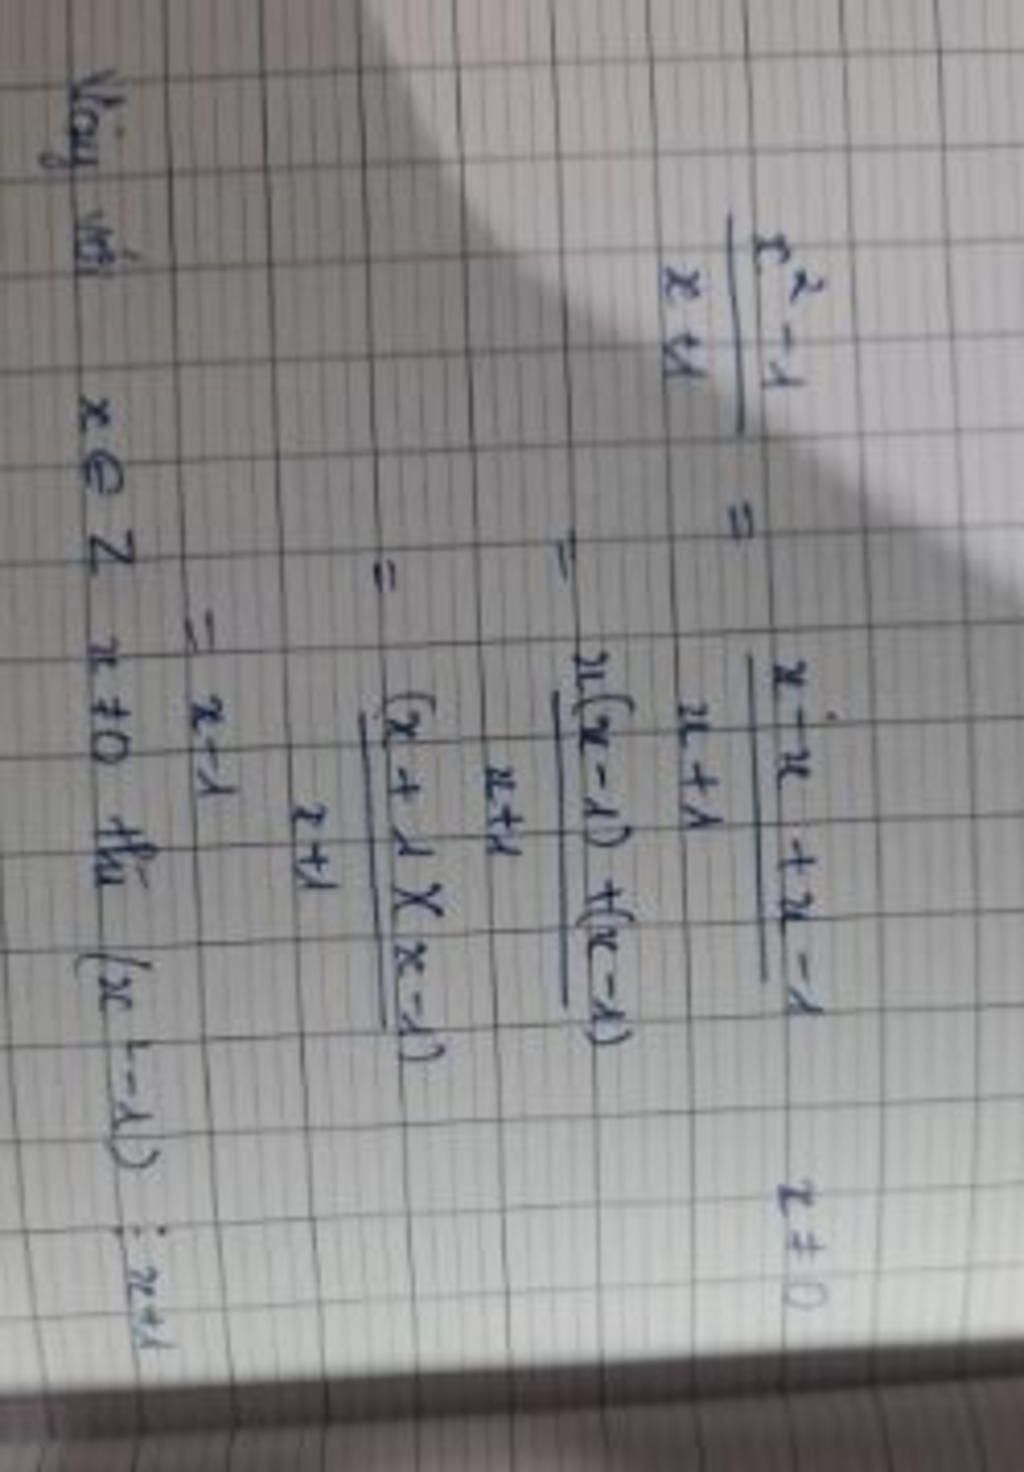 x² - 1 / x + 1 = x - x + x - 1 / x + 1    x ≠ 0
= x(x - 1) + (x - 1) / x + 1
= (x + 1)(x - 1) / x + 1
= x - 1
Vậy với x ∈ Z x ≠ 0 thì (x² - 1) ⋮ x + 1